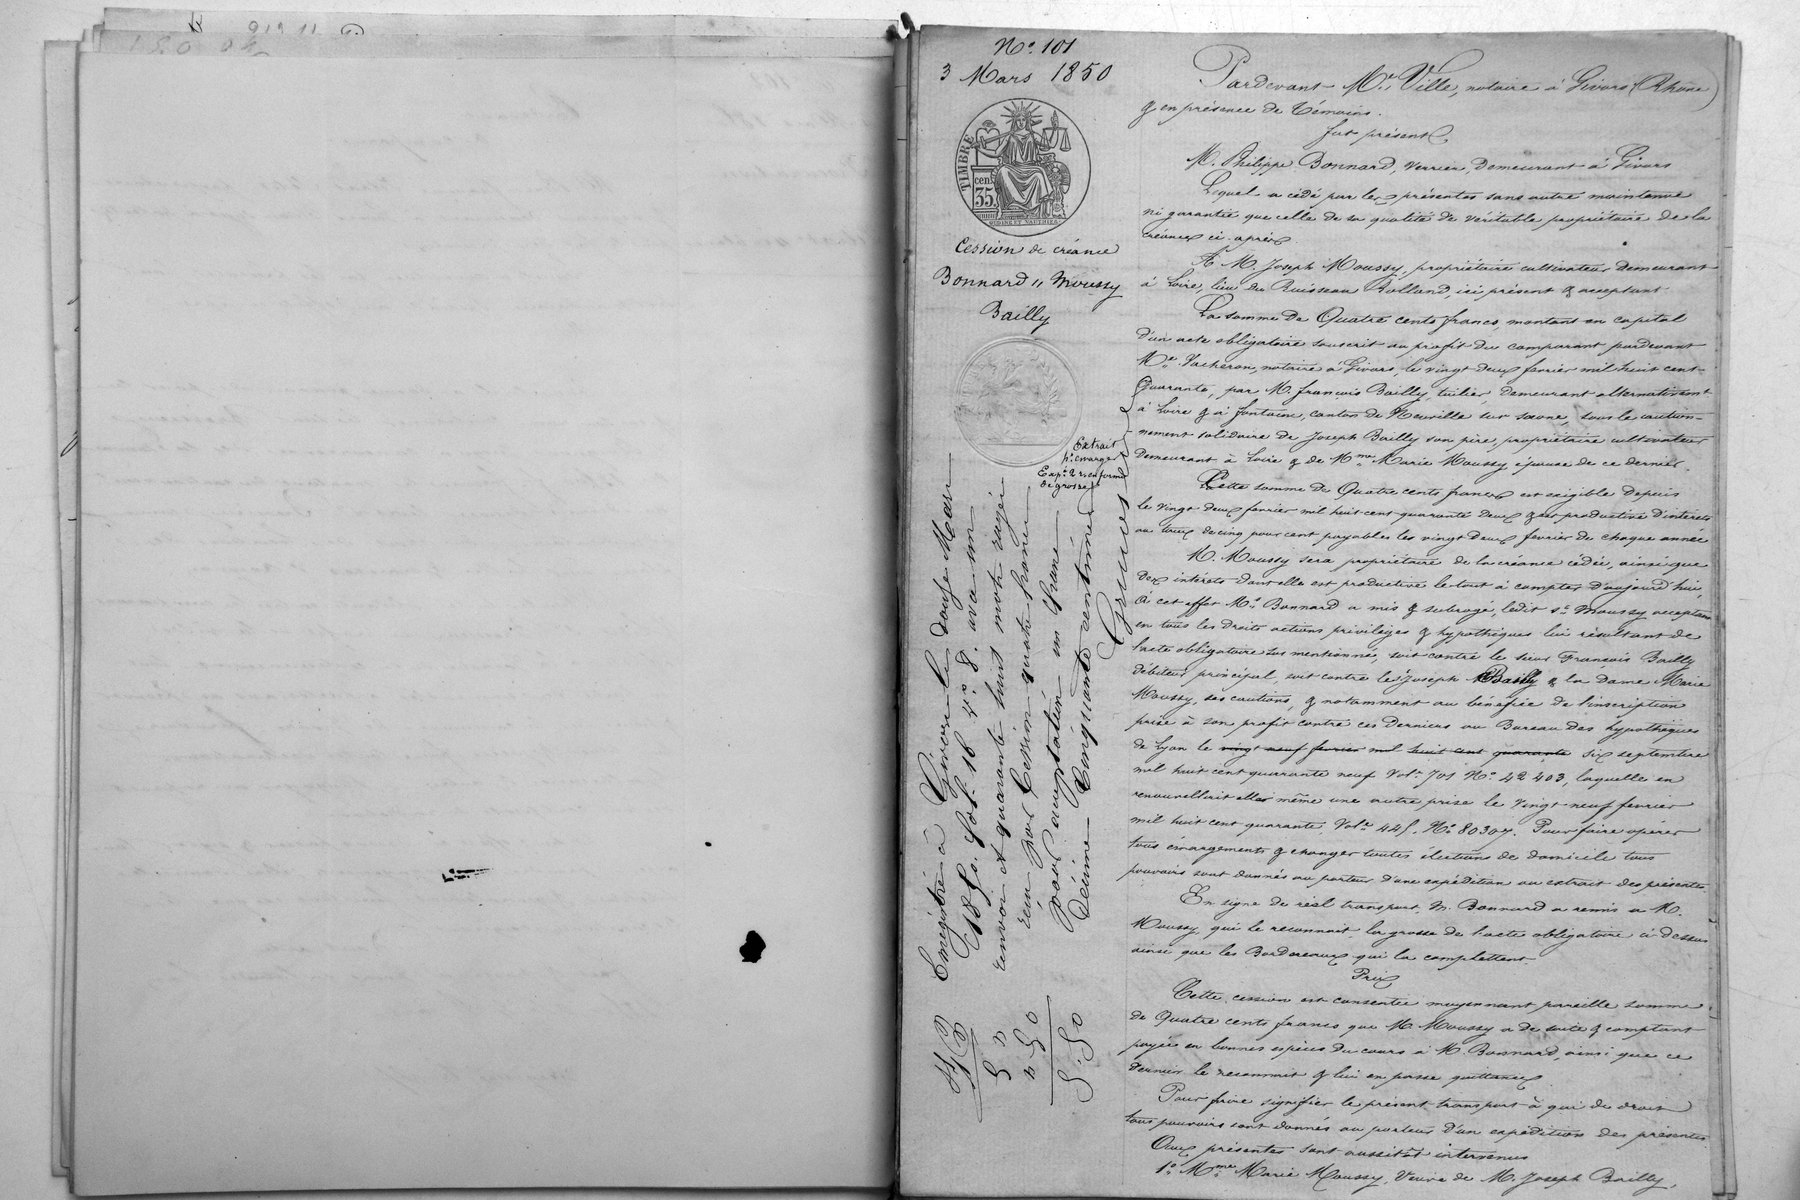 N° 101
3 Mars 1850
TIMBRE
cen.
35.
Cession de créance
Bonnard à Moussy
Bailly
Extrait
pr. émarger
Exp.on 2 r. en forme
de grosse
Enregistré à Givors le douze Mars
1850. fol. 16. v° 8. avec un
renvoi et quarante huit mots rayés
reçu pour Cession quatre francs
pour acceptation un franc
Décime Cinquante centimes
5 "
" 50
5.50
Pardevant Me. Ville, notaire à Givors (Rhône)
& en présence de témoins.
fut présent
M. Philippe Bonnard, verrier, demeurant à Givors
Lequel a cédé par les présentes sans autre maintenue
ni garantie que celle de sa qualité de véritable propriétaire de la
créance ci-après
A M. Joseph Moussy, propriétaire cultivateur demeurant
à Loire, lieu du Ruisseau Rolland, ici présent & acceptant
La somme de Quatre cents francs, montant en capital
d'un acte obligatoire souscrit au profit du comparant pardevant
Me. Vacheron, notaire à Givors, le vingt deux février mil huit cent
Quarante, par M. François Bailly, tuilier, demeurant alternativement
à Loire & à Fontaine, canton de Neuville sur saone, sous le caution-
nement solidaire de Joseph Bailly son père, propriétaire cultivateur
demeurant à Loire & de Mme Marie Moussy épouse de ce dernier.
Cette somme de Quatre cents francs est exigible depuis
le vingt deux février mil huit cent quarante deux & est productive d'intérêts
au taux de cinq pour cent payables les vingt deux février de chaque année
M. Moussy sera propriétaire de la créance cédée, ainsi que
des intérêts dont elle est productive le tout à compter d'aujourd'hui,
à cet effet M. Bonnard a mis & subrogé, ledit sr. Moussy acceptant
en tous les droits actions privilèges & hypothèques lui résultant de
l'acte obligatoire sus mentionné, soit contre le sieur François Bailly
débiteur principal, soit contre le Joseph Bailly & la Dame Marie
Moussy, ses cautions, & notamment au bénéfice de l'inscription
prise à son profit contre ces derniers au Bureau des hypothèques
de Lyon le vingt neuf février mil huit cent quarante six septembre
mil huit cent quarante neuf Vol. 701 N° 42403, laquelle en
renouvellait elle même une autre prise le vingt neuf février
mil huit cent quarante, Vol. 445. N° 80307. Pour faire opérer
tous émargements & changer toutes élections de domicile tous
pouvoirs sont donnés au porteur d'une expédition ou extrait des présentes
En signe de réel transport, M. Bonnard a remis à M.
Moussy, qui le reconnait, la grosse de l'acte obligatoire ci-dessus
ainsi que les Bordereaux qui la complettent.
Prix
Cette cession est consentie moyennant pareille somme
de Quatre cents francs que M. Moussy a de suite & comptant
payée en bonnes espèces du cours à M. Bonnard, ainsi que ce
dernier le reconnait & lui en passe quittance
Pour faire signifier le présent transport à qui de droit
tous pouvoirs sont donnés au porteur d'un expédition des présentes
Aux présentes sont aussitôt intervenus
1° Mme Marie Moussy, Veuve de M. Joseph Bailly,